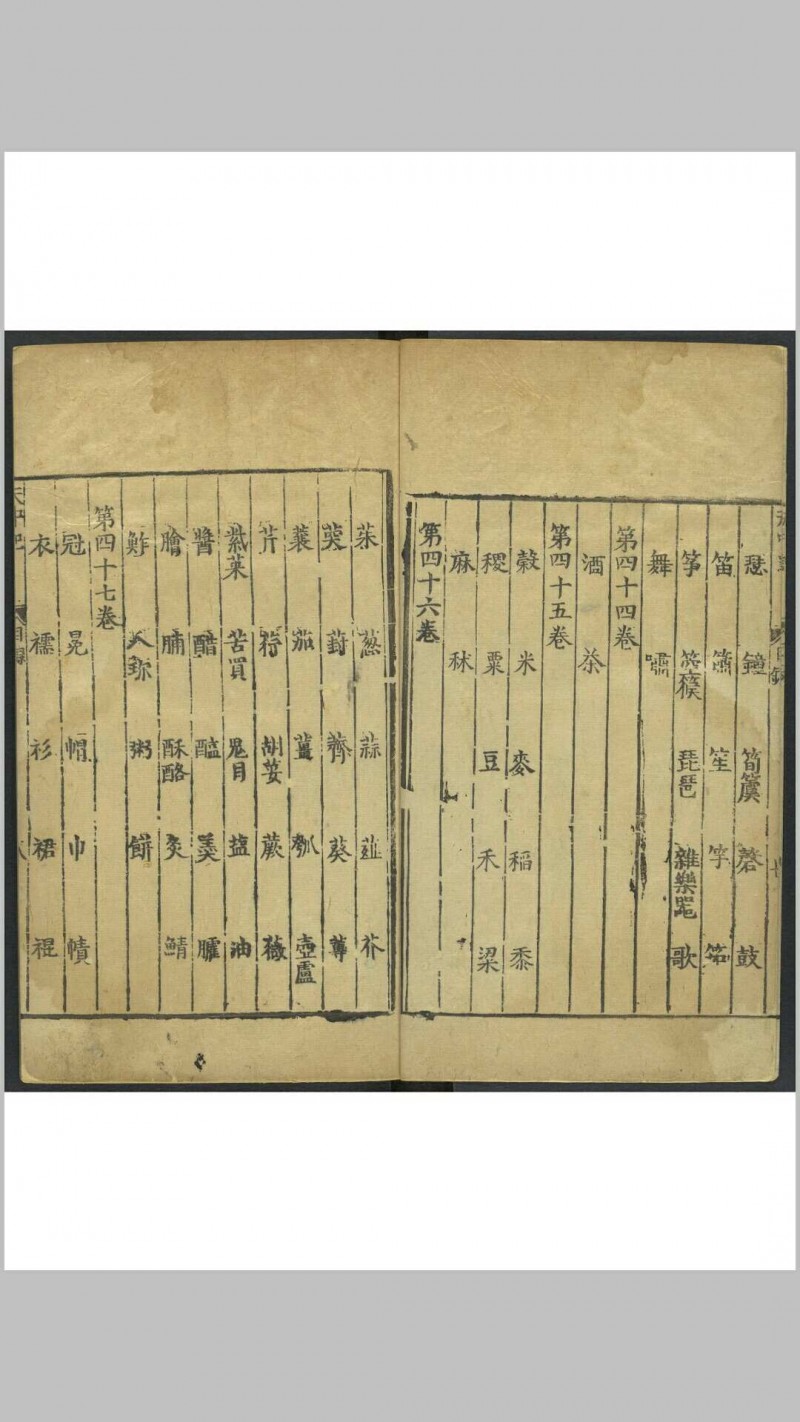 瑟 鐘 筍簴 磬 鼓
笛 簫 笙 竽 笳
筝 箜篌 琵琶 雜樂噐 歌
舞 嘯
第四十四卷
酒 茶
第四十五卷
榖 米 麥 稻 黍
稷 粟 豆 禾 粱
麻 秫
第四十六卷
菜 葱 蒜 韮 芥
葑 薺 葵 蓴
蘘 茄 薑 瓠 壺盧
芹 荇 胡荽 蕨 薇
紫菜 苦買 鬼目 塩 油
醬 醋 醢 羮 臛
膾 脯 酥酪 炙 鯖
鮓 粥 餅
第四十七卷
冠 冕 帽 巾 幘
衣 襦 衫 裙 裩